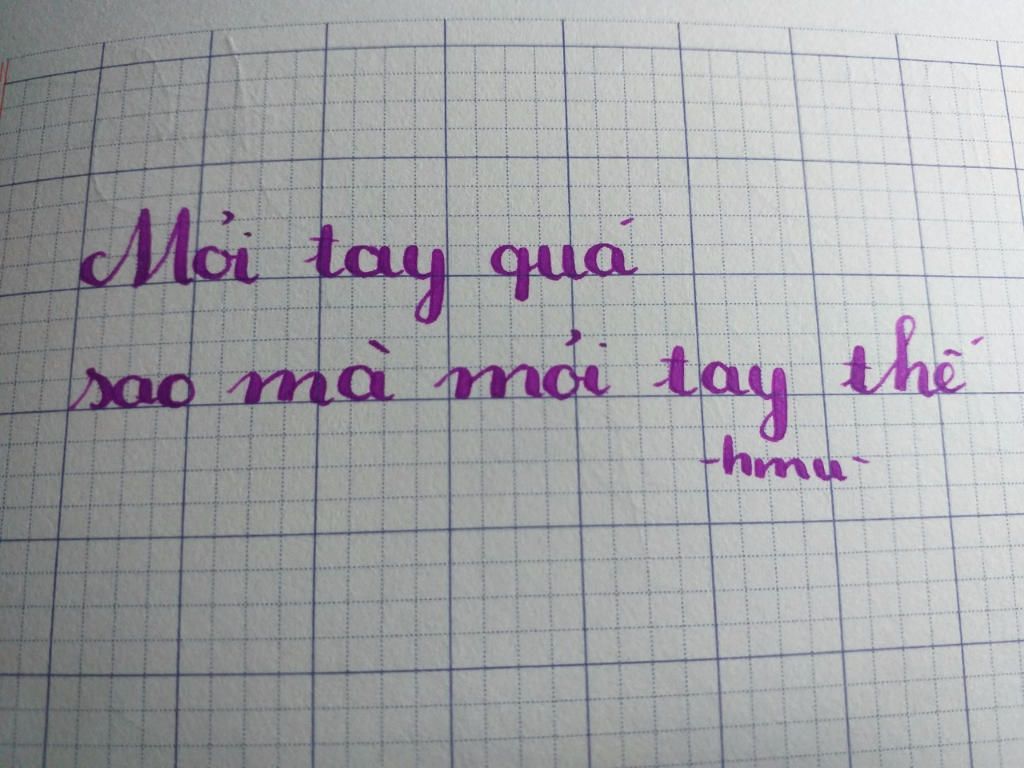 Mỏi tay quá
sao mà mỏi tay thế
-hmu-